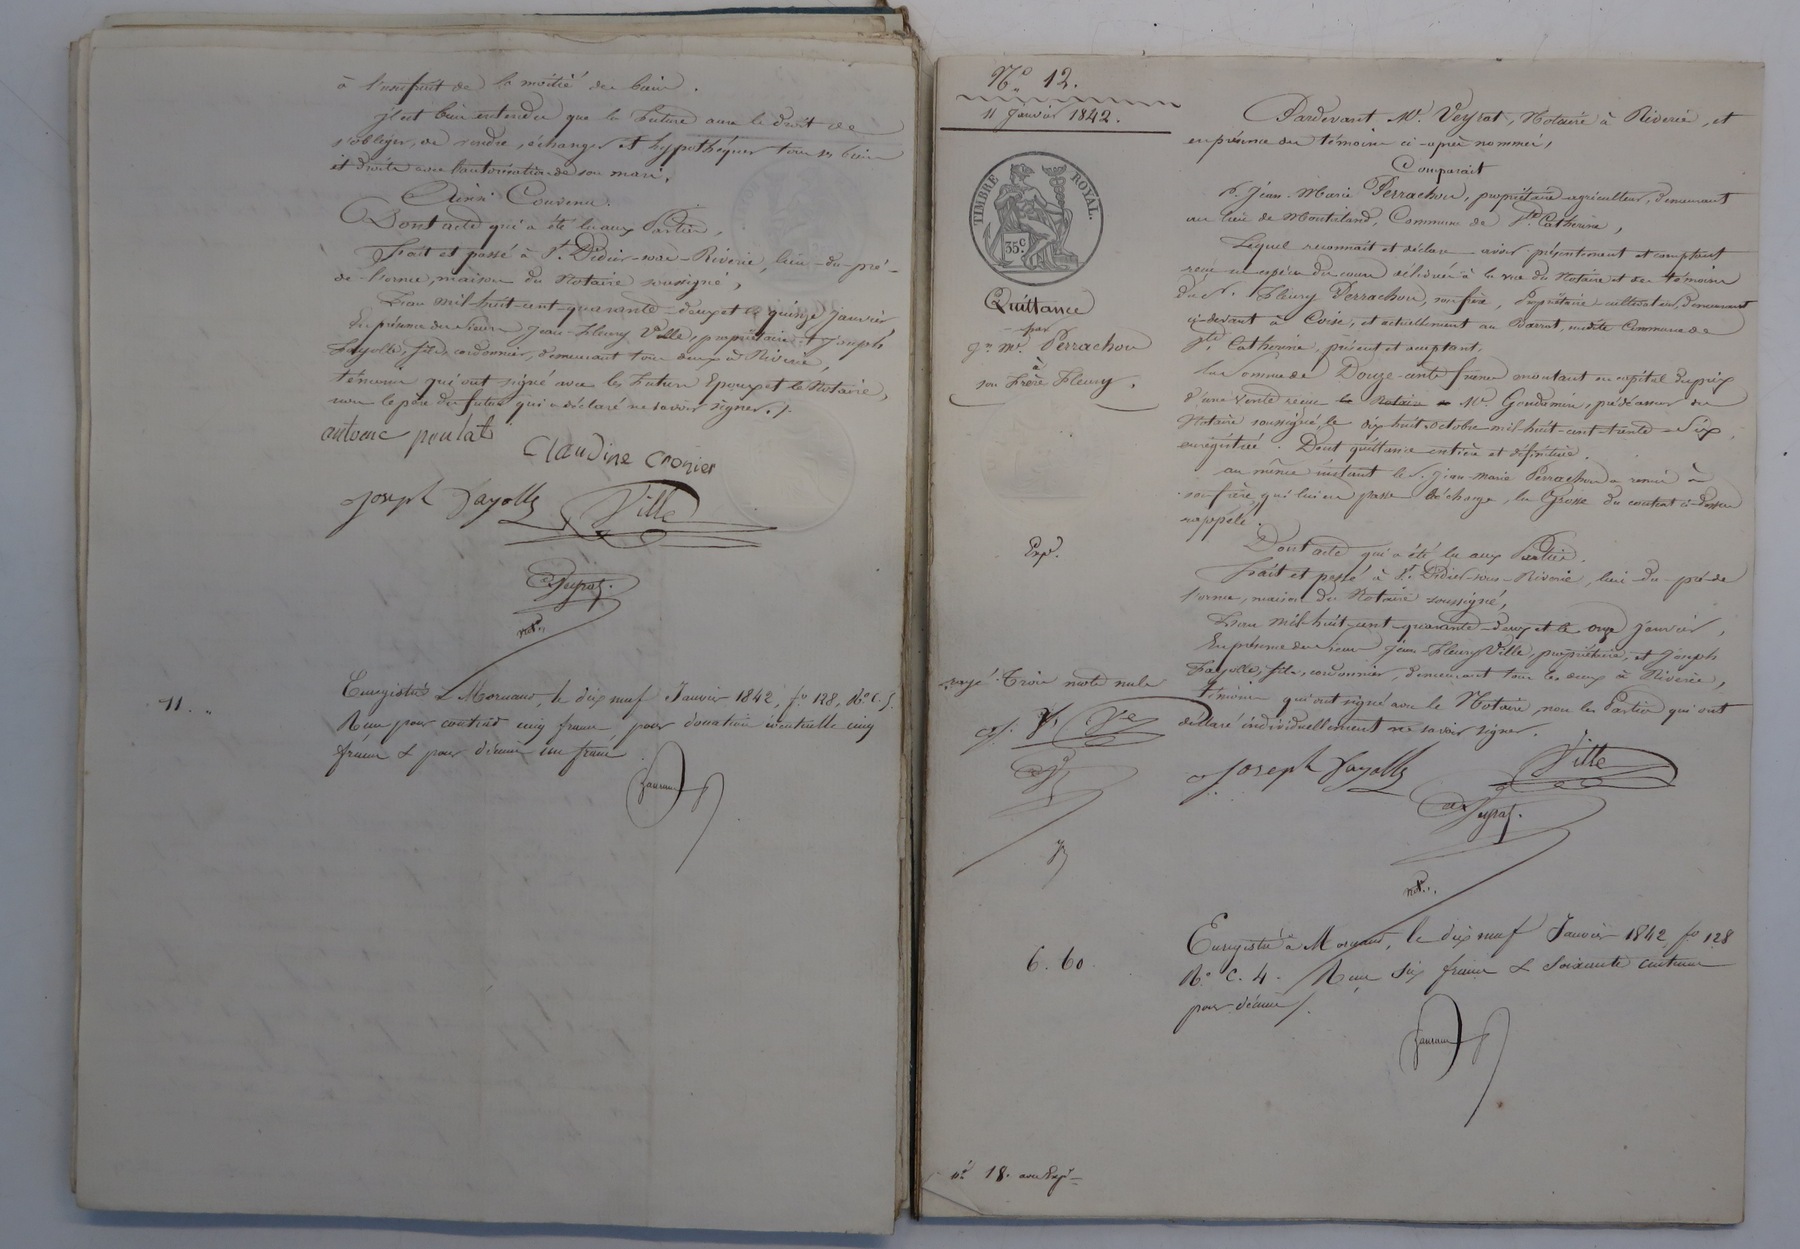 à l'usufruit de la moitié des biens.
Il est bien entendu que la Future aura le droit de
s'obliger, de vendre, échanger et hypothéquer tous ses biens
et droits avec l'autorisation de son mari.
Ainsi Convenu.
Dont acte qui a été lu aux Parties,
Fait et passé à St. Didier-sous-Riverie, lieu-du-pré-
de-l'orme, maison du Notaire soussigné,
L'an mil-huit-cent-quarante-deux et le quinze janvier
En présence des sieurs Jean-Fleury Ville, propriétaire et Joseph
Fayolle, fils, cordonnier, demeurant tous deux à Riverie,
témoins qui ont signé avec les Futurs Epoux et le Notaire,
non le père du futur qui a déclaré ne savoir signer./.
antoine poulat
Claudine Cronier
Joseph Fayolle Ville
Veyrat
not.
11. "
Enregistré à Mornant, le dix neuf Janvier 1842, fo. 128, Ro. C. 5.
Reçu pour contrat cinq francs, pour donation éventuelle cinq
francs & pour décime un franc
No. 12.
11 Janvier 1842.
TIMBRE ROYAL.
35c
Quittance
par
Jn. Me. Perrachon
à
son Frère Fleury.
Pardevant Me. Veyrat, Notaire à Riverie, et
en présence des témoins ci-après nommés,
Comparait
S. Jean-Marie Perrachon, propriétaire-agriculteur, demeurant
au lieu de Commune de Ste. Catherine,
Lequel reconnait et déclare avoir présentement et comptant
reçu en espèces du cours délivrées à la vue du Notaire et des témoins
du S. Fleury Perrachon, son frère, Propriétaire-cultivateur, demeurant
ci-devant à Coise, et actuellement au Commune de
Ste. Catherine, présent et acceptant,
La somme de Douze-cents francs montant en capital du prix
d'une vente reçue le Notaire Me. Gendumire, prédécesseur du
Notaire soussigné, le dix-huit octobre mil-huit-cent-trente-Six,
enregistrée. Dont quittance entière et définitive.
au même instant le S. Jean-Marie Perrachon a remis à
son frère, qui lui en passe décharge, la Grosse du contrat ci-dessus
rappelé.
Expé.
Dont acte qui a été lu aux Parties.
Fait et passé à St. Didier-sous-Riverie, lieu-du-pré-de
l'orme, maison du Notaire soussigné,
L'an mil-huit-cent-quarante-deux et le onze janvier,
En présence des sieurs Jean-Fleury Ville, propriétaire, et Joseph
Fayolle, fils, cordonnier, demeurant tous les deux à Riverie,
témoins qui ont signé avec le Notaire, non les Parties qui ont
déclaré individuellement ne savoir signer.
rayé Trois mots nuls
Joseph Fayolle Ville
Veyrat.
not.
6. 60.
Enregistré à Mornant, le dix neuf Janvier 1842 fo 128
Ro. C. 4. Reçu six francs & soixante centimes
pour décime /.
18. avec Expé